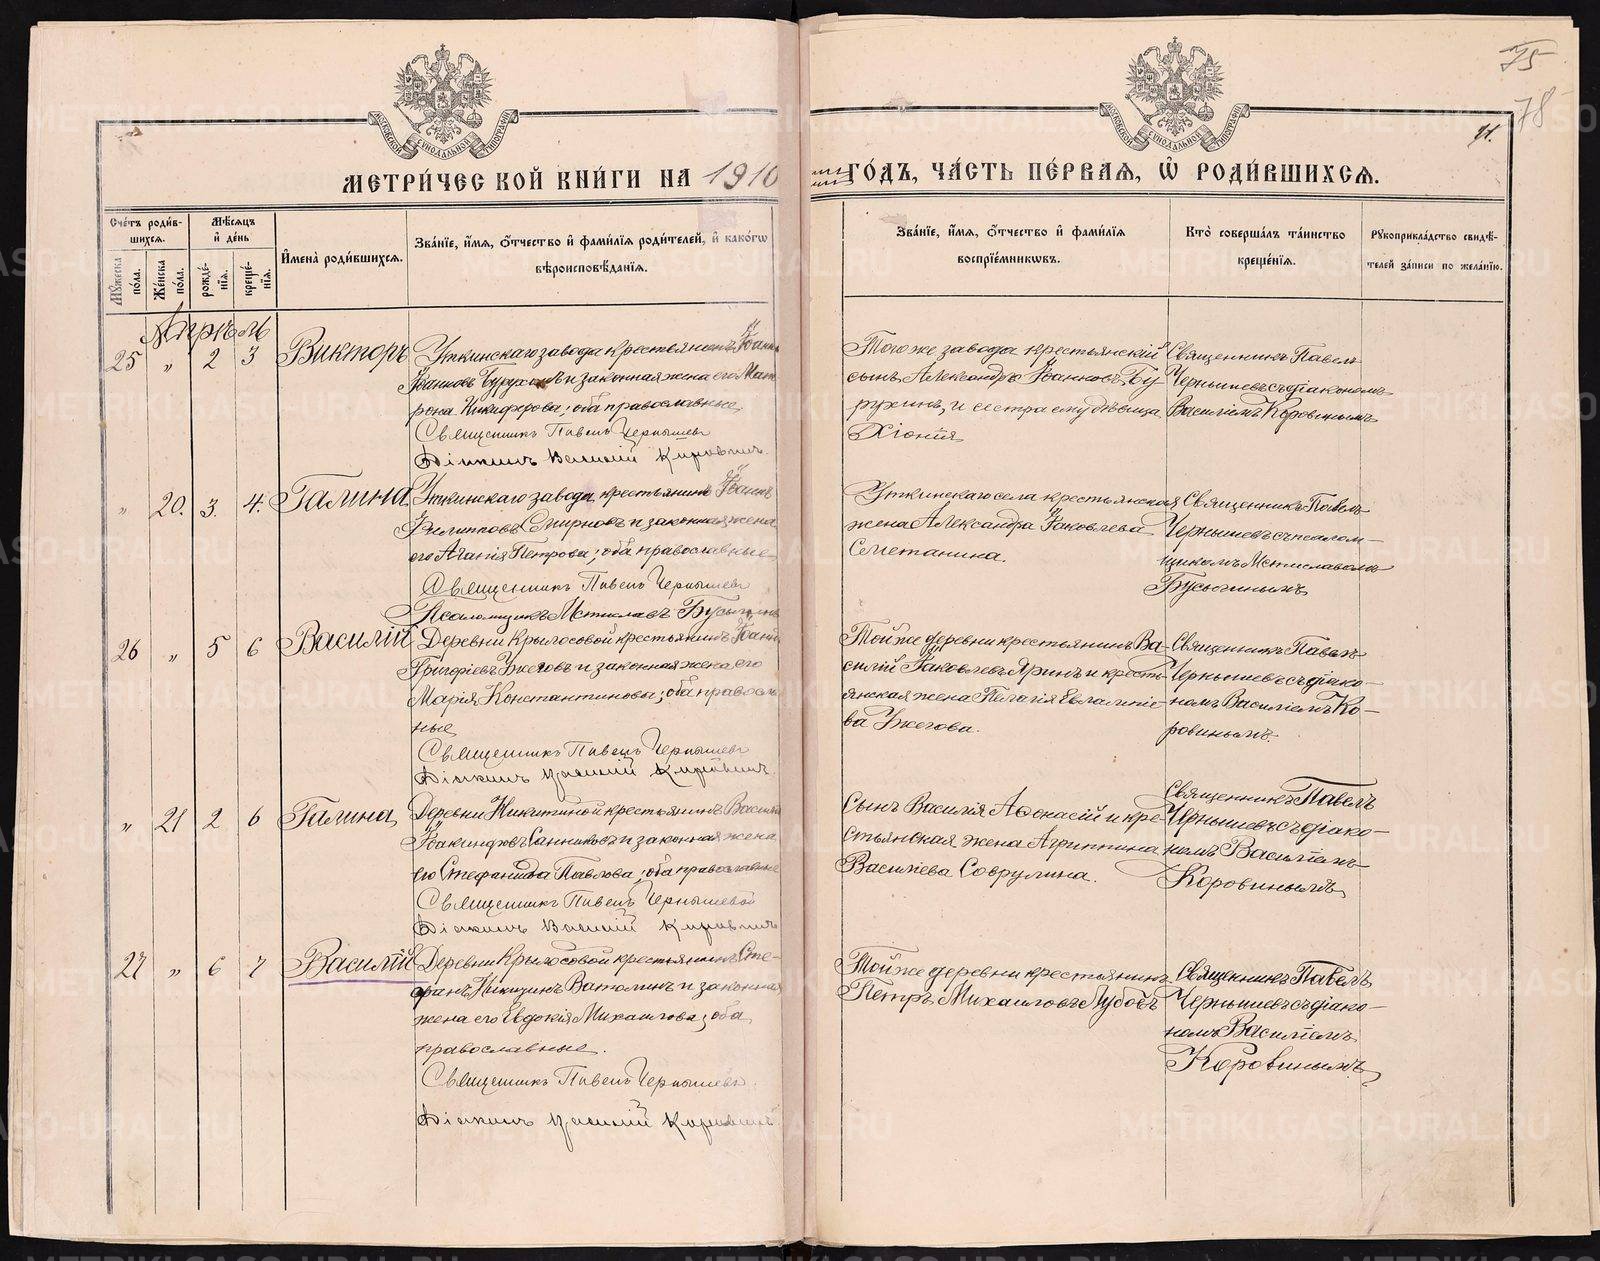 75
78
71.
МОСКОВСКОЙ СѴНОДАЛЬНОЙ ТИПОГРАФІИ
МОСКОВСКОЙ СѴНОДАЛЬНОЙ ТИПОГРАФІИ
МЕТРИ́ЧЕСКОЙ КНИ́ГИ НА 1910
ГО́ДЪ, ЧА́СТЬ ПЕ́РВАѦ, Ѡ҆ РОДИ́ВШИХСѦ.
Сче́тъ роди́в-
шихсѧ.
Мꙋ́жеска по́ла.
Же́нска по́ла.
Мѣ́сѧцъ
и҆ де́нь
рожде́-
нїѧ.
креще́-
нїѧ.
И҆мена̀ роди́вшихсѧ.
Зва́нїе, и҆́мѧ, ѻ҆́тчество и҆ фами́лїѧ роди́телей, и҆ како́гѡ
вѣроисповѣ́данїѧ.
Зва́нїе, и҆́мѧ, ѻ҆́тчество и҆ фами́лїѧ
воспрїе́мникѡвъ.
Кто̀ соверша́лъ та́инство
креще́нїѧ.
Рꙋкоприкла́дство свидѣ́-
телей за́писи по жела́нїю.
Апрѣль
25 " 2 3 Викторъ
Уткинскаго завода крестьянинъ Іоаннъ
Іоанновъ Бурухинъ и законная жена его Мат
рона Никифорова; оба православные
Священникъ Павелъ Чернышевъ
Діаконъ Василій Коровинъ.
Того же завода крестьянскій
сынъ Александръ Іоанновъ Бу
рухинъ, и сестра ему дѣвица
Хіонія
Священникъ Павелъ
Чернышевъ съ діакономъ
Василіемъ Коровинымъ
" 20. 3. 4. Галина
Уткинскаго завода крестьянинъ Іоаннъ
Филипповъ Смирновъ и законная жена
его Агапія Петрова; оба православные
Священникъ Павелъ Чернышевъ
Псаломщикъ Мстиславъ Бусыгинъ
Уткинскаго села крестьянская
жена Александра Іаковлева
Сметанина.
Священникъ Павелъ
Чернышевъ съ псалом-
щикомъ Мстиславомъ
Бусыгинымъ
26 " 5 6 Василій
Деревни Крылосовой крестьянинъ Іоаннъ
Григоріевъ Ужеговъ и законная жена его
Марія Константинова; оба православ
ные
Священникъ Павелъ Чернышевъ
Діаконъ Василій Коровинъ.
Той же деревни крестьянинъ Ва-
силій Іаковлевъ Яринъ и кресть-
янская жена Пелагія Евлампіе-
ва Ужегова.
Священникъ Павелъ
Чернышевъ съ діако-
номъ Василіемъ Ко-
ровинымъ.
" 21 2 6 Галина
Деревни Никитиной крестьянинъ Василій
Іоакинфовъ Санниковъ и законная жена
его Стефанида Павлова; оба православные
Священникъ Павелъ Чернышевъ
Діаконъ Василій Коровинъ
Сынъ Василія Аѳонасій и кре-
стьянская жена Агриппина
Василіева
Священникъ Павелъ
Чернышевъ съ діако-
номъ Василіемъ
Коровинымъ
27 " 6 7 Василій
Деревни Крылосовой крестьянинъ Сте-
фанъ Ватолинъ и законная
жена его Евдокія Михаилова; оба
православные.
Священникъ Павелъ Чернышевъ.
Діаконъ Василій Коровинъ
Той же деревни крестьянинъ
Петръ Михаиловъ Зубовъ
Священникъ Павелъ
Чернышевъ съ діако-
номъ Василіемъ
Коровинымъ
METRIKI.GASO-URAL.RU